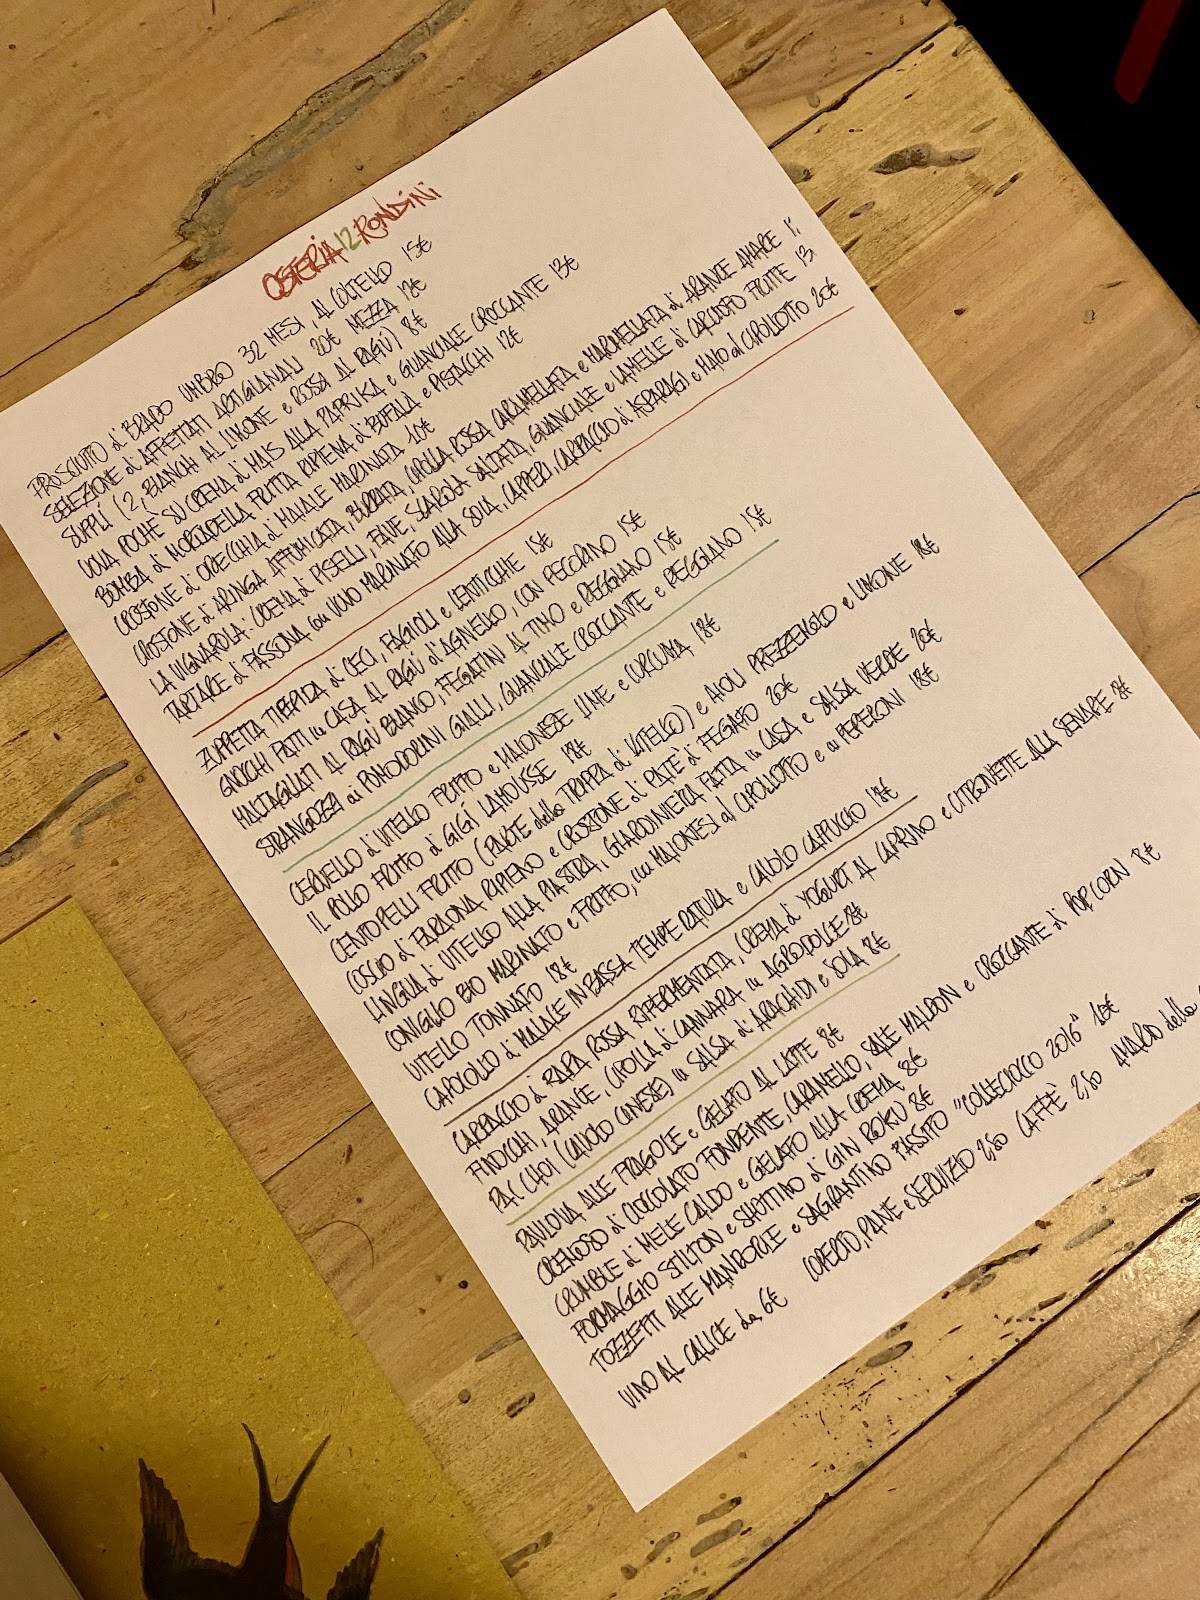 OSTERIA 12 RONDINI
PROSCIUTTO di BRADO UMBRO 32 MESI, AL COLTELLO 15€
SELEZIONE di AFFETTATI ARTIGIANALI 20€ MEZZA 12€
SUPPLÍ (2, BIANCHI AL LIMONE e ROSSI AL RAGÙ) 8€
UOVA POCHÈ SU CREMA di MAIS ALLA PAPRIKA e GUANCIALE CROCCANTE 13€
BOMBA di MORTADELLA FRITTA RIPIENA di BUFALA e PISTACCHI 12€
CROSTONE d'ORECCHIA di MAIALE MARINATA 10€
CROSTONE d'ARINGA AFFUMICATA, BURRATA, CIPOLLA ROSSA CARAMELLATA e MARMELLATA di ARANCE AMARE
LA VIGNAROLA: CREMA di PISELLI, FAVE, SCAROLA SALTATA, GUANCIALE e LAMELLE di CARCIOFO FRITTE 13
TARTARE di FASSONA con UOVO MARINATO ALLA SOIA, CAPPERI, CARPACCIO di ASPARAGI e MAIO al CIPOLLOTTO 20€
ZUPPETTA TIEPIDA di CECI, FAGIOLI e LENTICCHIE 15€
GNOCCHI FATTI in CASA AL RAGÙ d'AGNELLO, CON PECORINO 15€
MALTAGLIATI AL RAGÙ BIANCO, FEGATINI AL TIMO e REGGIANO 15€
STRANGOZZI ai POMODORINI GIALLI, GUANCIALE CROCCANTE e REGGIANO 15€
CERVELLO di VITELLO FRITTO e MAIONESE LIME e CURCUMA 18€
IL POLLO FRITTO di GIGÍ LAMOUSSE 18€
CENTOPELLI FRITTO (PARTE della TRIPPA di VITELLO) e AIOLI PREZZEMOLO e LIMONE 18€
COSCIO di FARAONA RIPIENO e CROSTONE di PATÈ di FEGATO 20€
LINGUA di VITELLO ALLA PIASTRA, GIARDINIERA FATTA in CASA e SALSA VERDE 20€
CONIGLIO BIO MARINATO e FRITTO, con MAIONESI al CIPOLLOTTO e ai PEPERONI 18€
VITELLO TONNATO 18€
CAPOCOLLO di MAIALE IN BASSA TEMPERATURA e CAVOLO CAPUCCIO 18€
CARPACCIO di RAPA ROSSA RIFERMENTATA, CREMA di YOGURT AL CAPRINO e CITRONETTE ALLA SENAPE 8€
FINOCCHI, ARANCE, CIPOLLA di CANNARA in AGRODOLCE 8€
PAC CHOI (CAVOLO CINESE) in SALSA di ARACHIDI e SOIA 8€
PAVLOVA ALLE FRAGOLE e GELATO AL LATTE 8€
CREMOSO di CIOCCOLATO FONDENTE, CARAMELLO, SALE MALDON e CROCCANTE di POPCORN 8€
CRUMBLE di MELE CALDO e GELATO ALLA CREMA 8€
FORMAGGIO STILTON e SHOTTINO di GIN ROKU 8€
TOZZETTI ALLE MANDORLE e SAGRANTINO PASSITO "COLLECIOCCO 2016" 10€
VINO AL CALICE da 6€ COPERTO, PANE e SERVIZIO 2,50 CAFFÈ 2,50 AMARO della